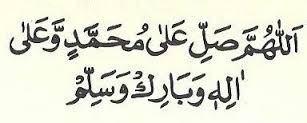 اَللّٰهُمَّ صَلِّ عَلٰى مُحَمَّدٍ وَّعَلٰى
اٰلِهٖ وَبَارِكْ وَسَلِّمْ